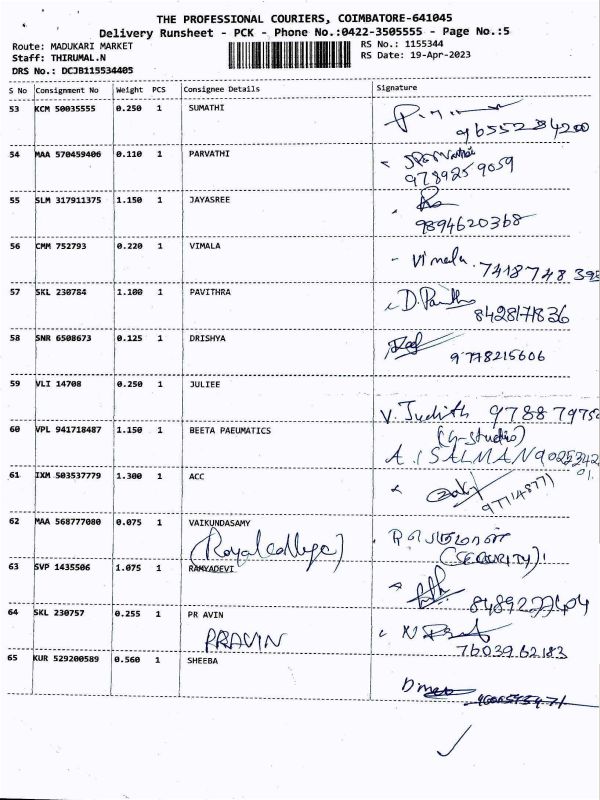 THE PROFESSIONAL COURIERS, COIMBATORE-641045
Delivery Runsheet - PCK - Phone No.:0422-3505555 - Page No.:5
Route: MADUKARI MARKET
RS No.: 1155344
Staff: THIRUMAL.N
RS Date: 19-Apr-2023
DRS No.: DCJB115534405
S No Consignment No Weight PCS Consignee Details Signature
53 KCM 50035555 0.250 1 SUMATHI
9655234200
54 MAA 570459406 0.110 1 PARVATHI
9789259059
55 SLM 317911375 1.150 1 JAYASREE
9894620368
56 CMM 752793 0.220 1 VIMALA Vimala
7418748398
57 SKL 230784 1.100 1 PAVITHRA
8428171836
58 SNR 6508673 0.125 1 DRISHYA
9778215606
59 VLI 14708 0.250 1 JULIEE
V. Judith 978879750
60 VPL 941718487 1.150 1 BEETA PAEUMATICS
A. SALMAN 9025342
61 IXM 503537779 1.300 1 ACC
62 MAA 568777080 0.075 1 VAIKUNDASAMY
(Royal college)
(SECURITY)
63 SVP 1435506 1.075 1 RAMYADEVI
8489277404
64 SKL 230757 0.255 1 PR AVIN
PRAVIN
7603962183
65 KUR 529200589 0.560 1 SHEEBA